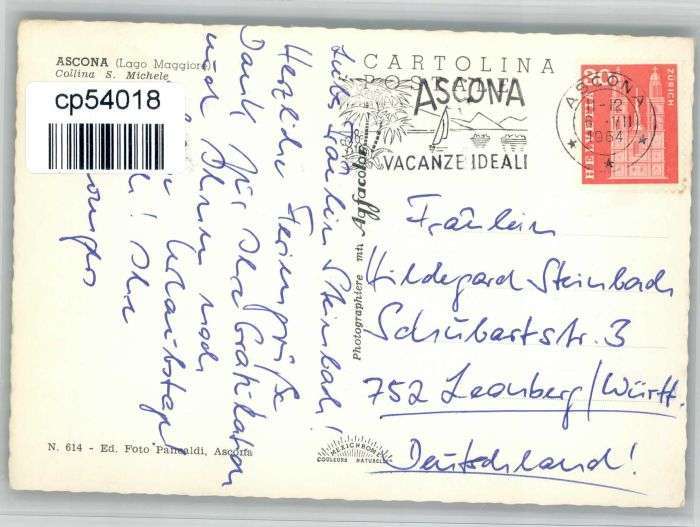 ASCONA (Lago Maggiore)
Collina S. Michele
cp54018
CARTOLINA
POSTALE
ASCONA
VACANZE IDEALI
ASCONA
-12
VII
1964
HELVETIA
20
ZÜRICH
Liebe Fräulein Steinbach!
Herzliche Feriengrüße
Dank für Ihre Gratulation
und Ihnen noch
Urlaubstage!
Ihre
Photographiere mit Agfacolor
Fräulein
Hildegard Steinbach
Schubartstr. 3
752 Leonberg/Württ.
Deutschland!
N. 614 - Ed. Foto Pancaldi, Ascona
MEXICHROME
COULEURS NATURELLES